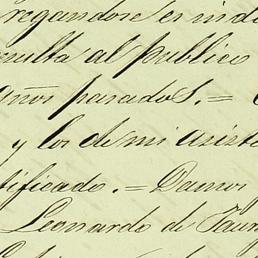 regandose es indi
onsulta al publico
años pasados. =
y los de mi asiste
tificado. = Damos
Leonardo de Taur